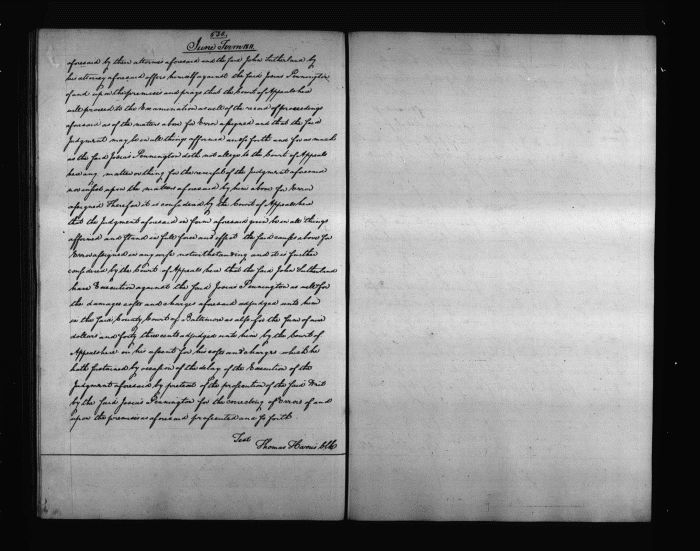 636,
June Term 1811.
aforesaid by their attornies aforesaid and the said John Sutherland by
his attorney aforesaid offers himself against the said Josias Pennington,
of and upon the premises and prays that the Court of Appeals here
will proceed to the Examination as well of the record of proceedings
aforesaid as of the matters above for Error assigned and that the said
Judgment may be in all things affirmed and so forth and for as much
as the said Josias Pennington doth not alledge to the Court of Appeals
here any matter or thing for the reversal of the Judgment aforesaid
nor insist upon the matters aforesaid by him above for Error
assigned Therefore it is considered by the Court of Appeals here
that the Judgment aforesaid in form aforesaid given be in all things
affirmed and stand in full force and effect the said causes above for
Error assigned in any wise notwithstanding and it is further
considered by the Court of Appeals here that the said John Sutherland
have Execution against the said Josias Pennington as well for
the damages costs and charges aforesaid adjudged unto him
in the said County Court of Baltimore as also for the sum of nine
dollars and forty three cents adjudged unto him by the Court of
Appeals here on his assent for his costs and charges which he
hath sustained by occasion of the delay of the Execution of the
Judgment aforesaid by pretext of the prosecution of the said Writ
by the said Josias Pennington for the correcting of Errors of and
upon the premises as aforesaid prosecuted and so forth
Test
Thomas Harris Clk